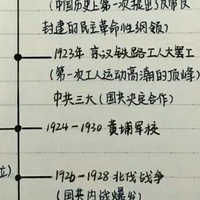 (中国历史上第一次提出了反帝反
封建的民主革命性纲领)
1923年 京汉铁路工人大罢工
(第一次工人运动高潮的顶峰)
中共三大(国共决定合作)
1924-1930 黄埔军校
位)
1926-1928 北伐战争
(国共内战爆发)